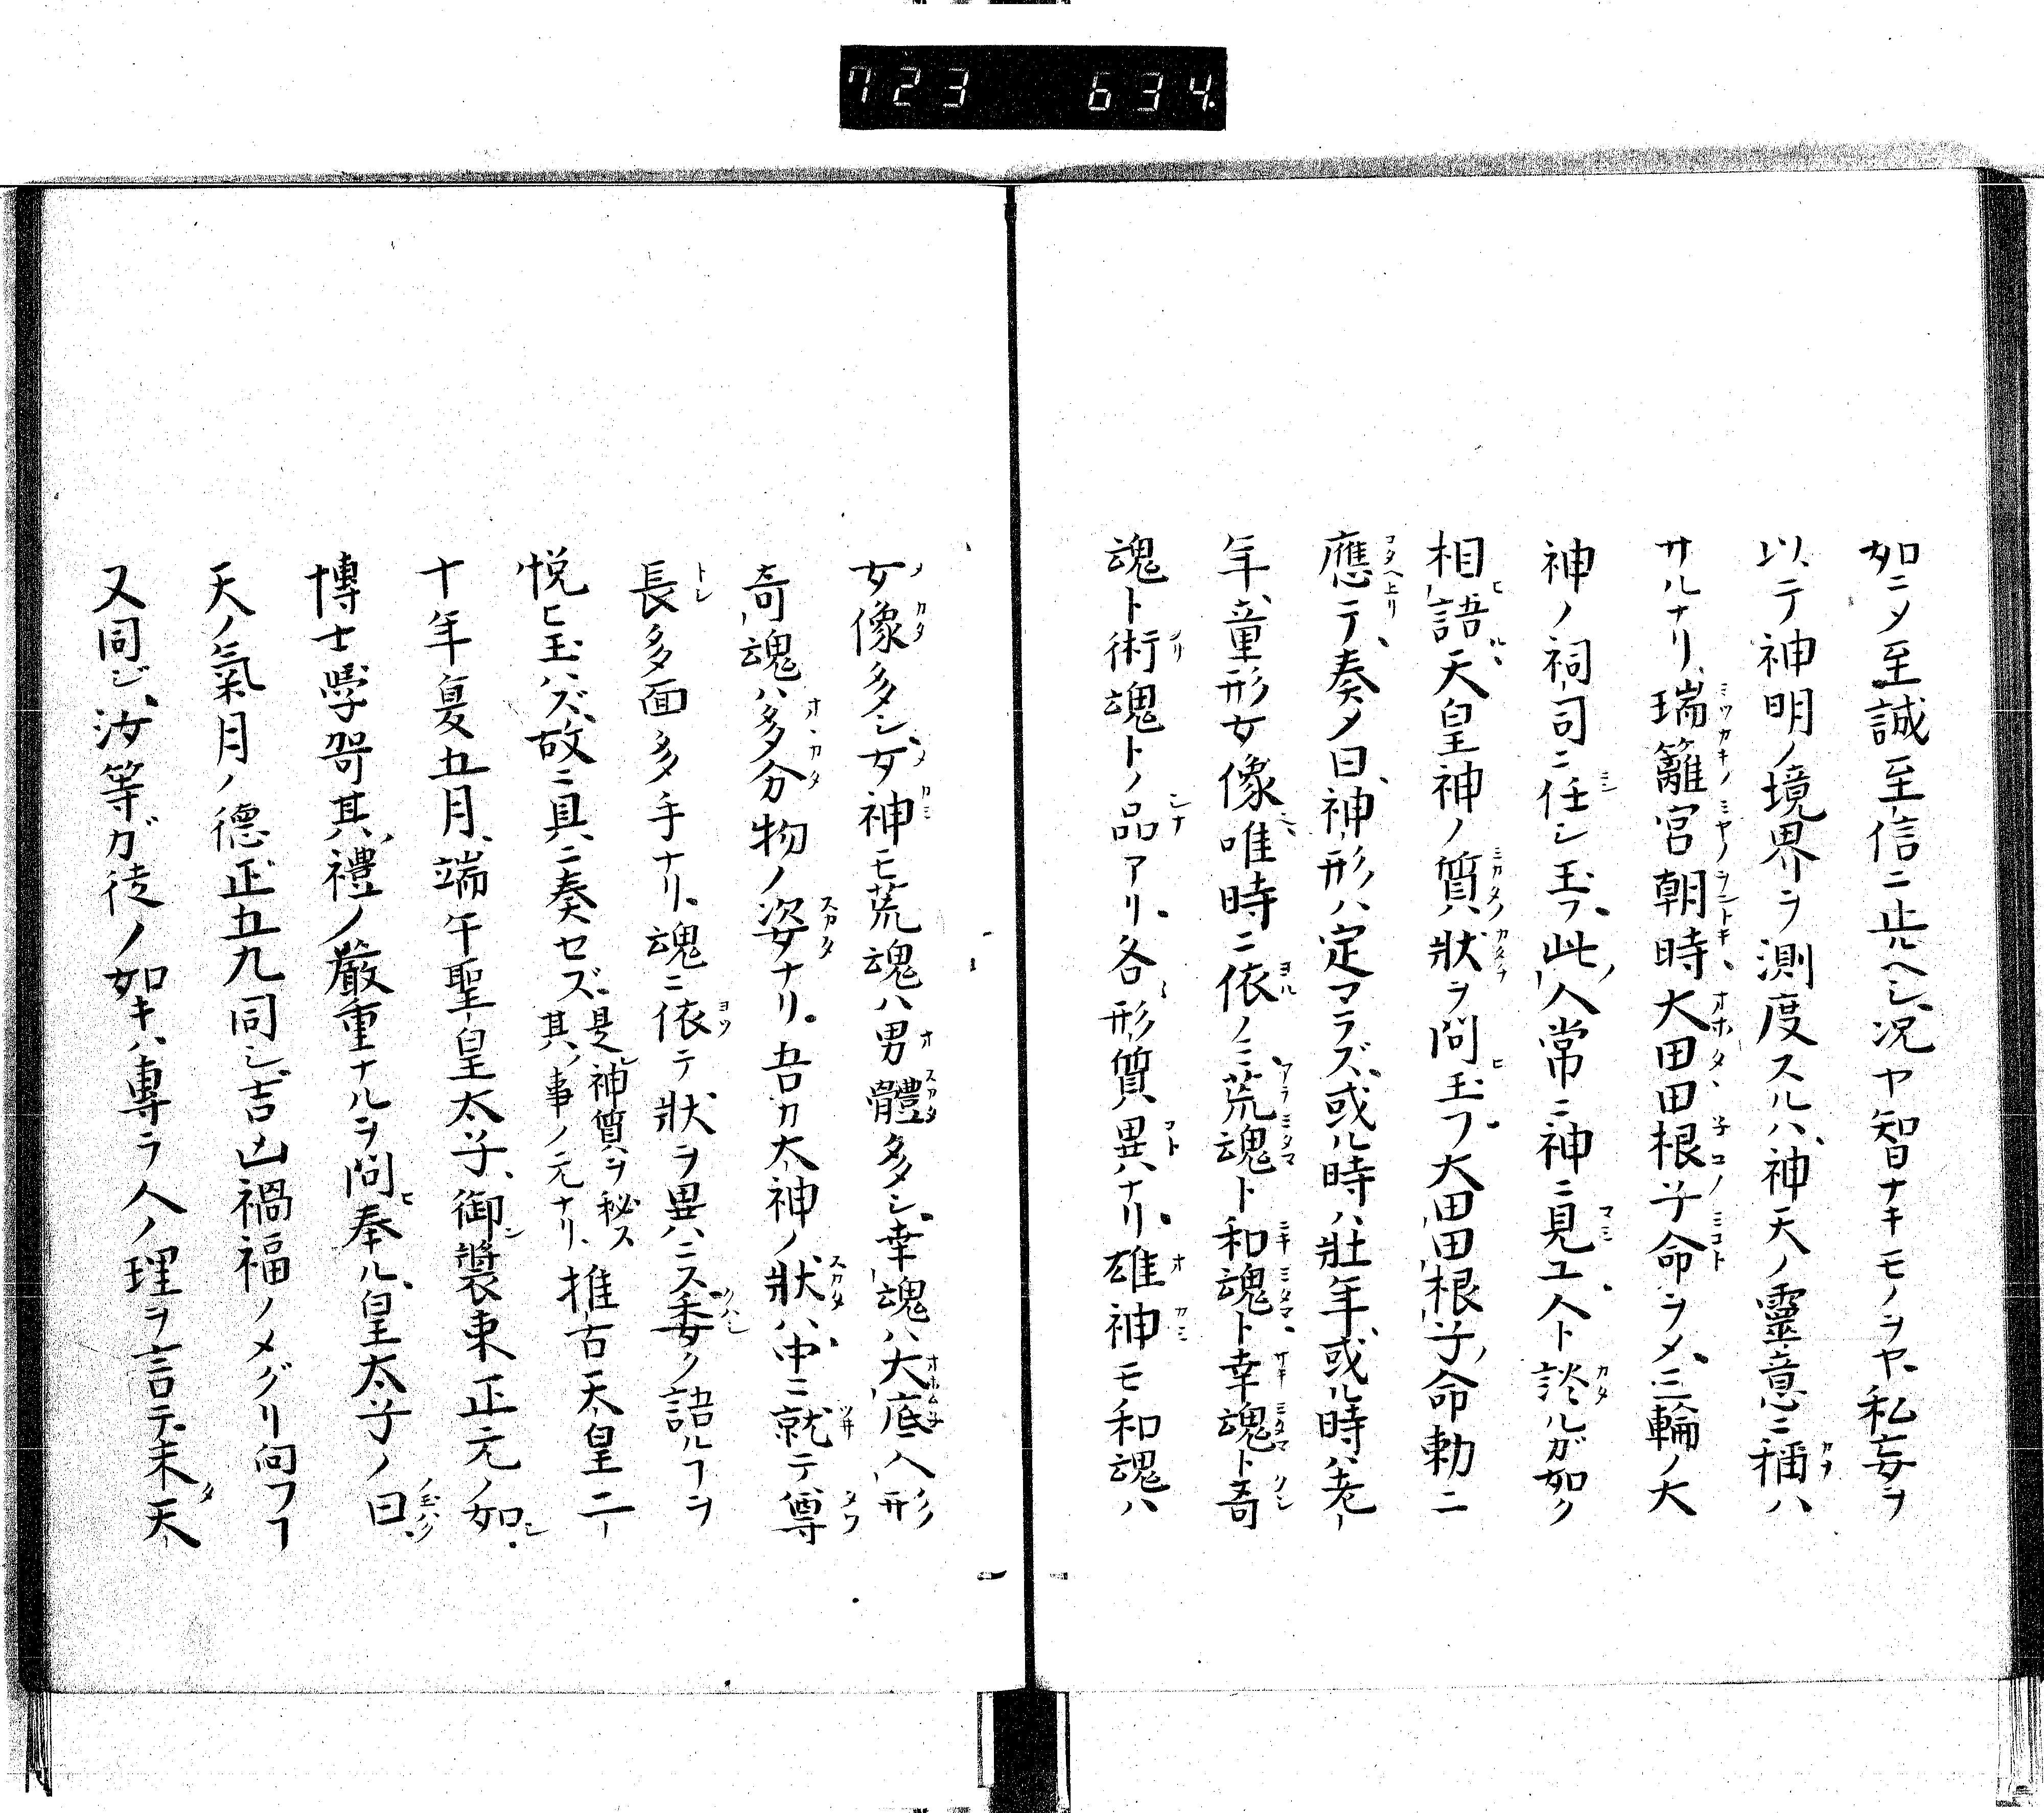 723 634
如ニメ至誠至信ニ止ルヘシ、况ヤ智ナキモノヲヤ、私妄ヲ
以テ神明ノ境界ヲ測度スルハ、神天ノ靈意ニ稱ハ
サルナリ、瑞籬宮朝時、大田田根子命ヲメ、三輪ノ大
神ノ祠司ニ任シ玉フ、此人常ニ神ニ見ユ人ト談ルガ如ク
相語、天皇神ノ質狀ヲ問玉フ、大田田根子命勅ニ
應テ、奏メ曰、神形ハ定マラズ、或ル時ハ壯年、或ル時ハ老
年、童形女像唯時ニ依ノミ、荒魂ト和魂ト幸魂ト奇
魂ト術魂トノ品アリ、各形質異ハナリ、雄神モ和魂ハ
女像多シ、女神モ荒魂ハ男體多シ、幸魂ハ大底人形
奇魂ハ多分物ノ姿ナリ。吾カ太神ノ狀ハ、中ニ就テ、尊
長多面多手ナリ、魂ニ依テ狀ヲ異ハニス、委ク語ルフヲ
悦ヒ玉ハズ、故ニ具ニ奏セズ、是神質ヲ秘ス其ノ事ノ元ナリ、推古天皇二
十年夏五月、端午聖皇太子、御裝束正元ノ如シ、
博士學哿其禮ノ嚴重ナルヲ問奉ル、皇太子ノ曰
天ノ氣月ノ德正五九同シ、吉凶禍福ノメグリ向フフ
又同ジ、汝等ガ徒ノ如キハ、專ラ人ノ理ヲ言テ、未天